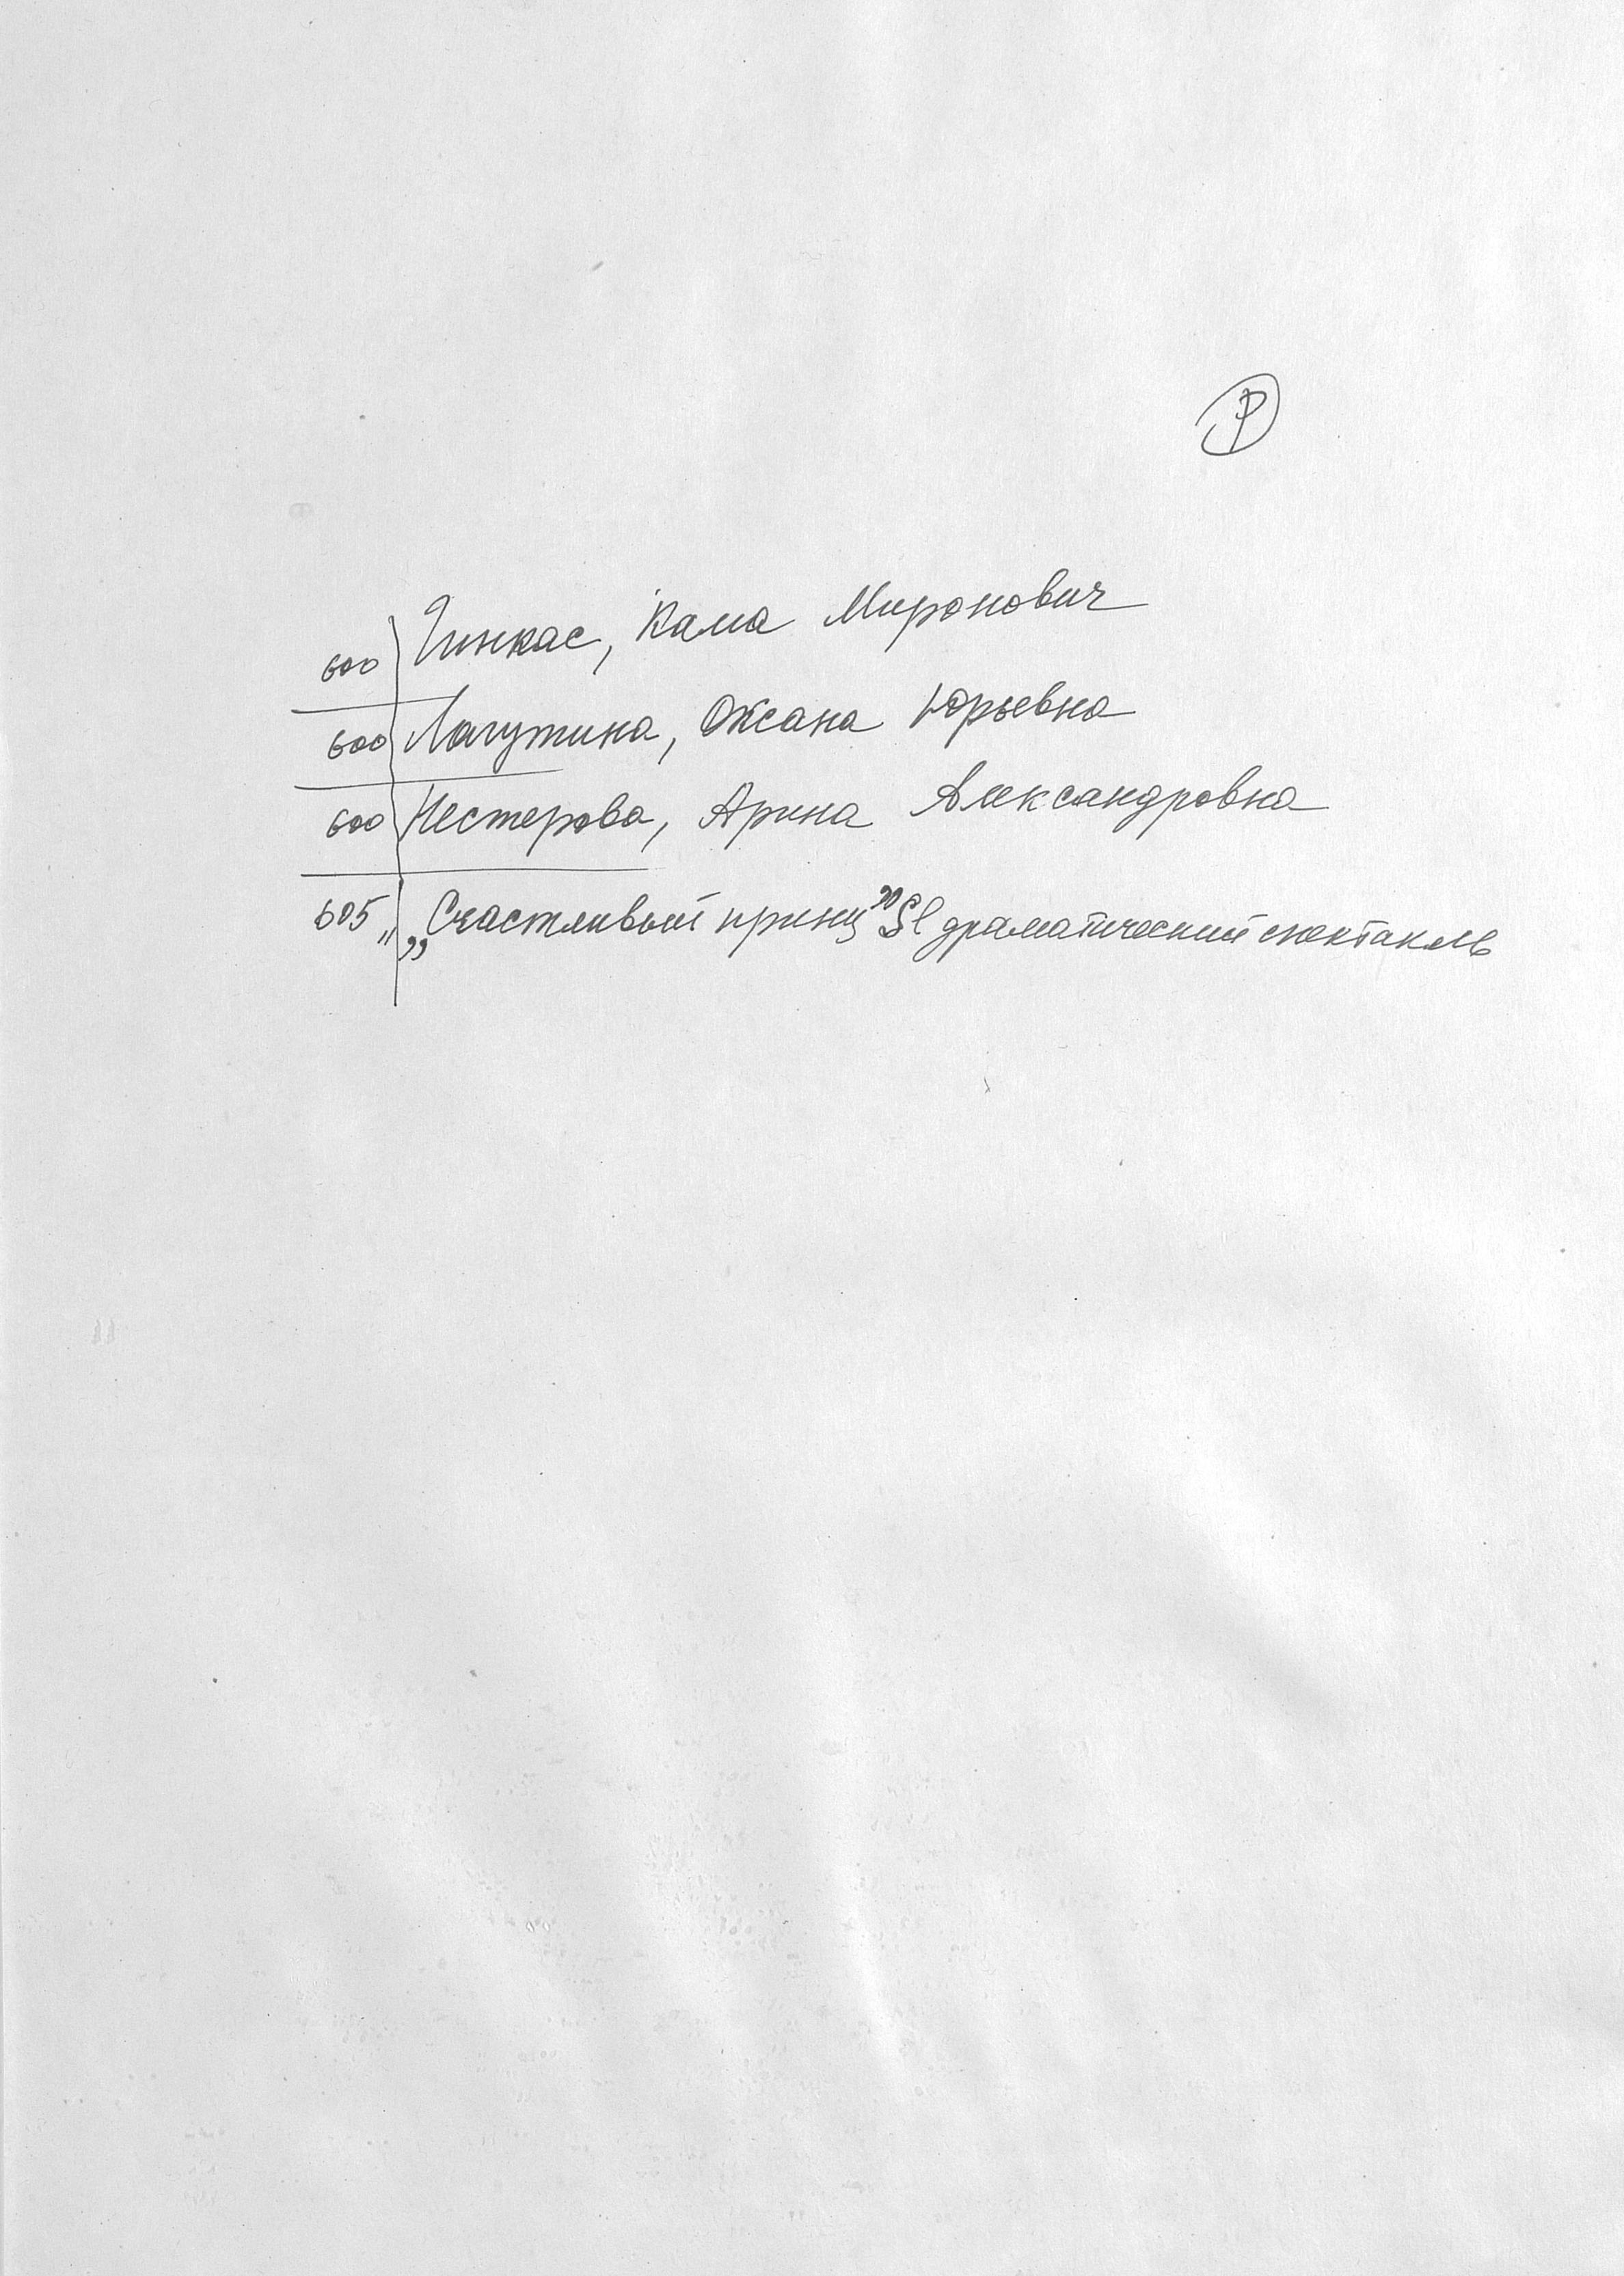 Р
600 Гинкас, Кама Миронович
600 Лагутина, Оксана Юрьевна
600 Нестерова, Арина Александровна
605 „ „Счастливый принц" $l драматический спектакль